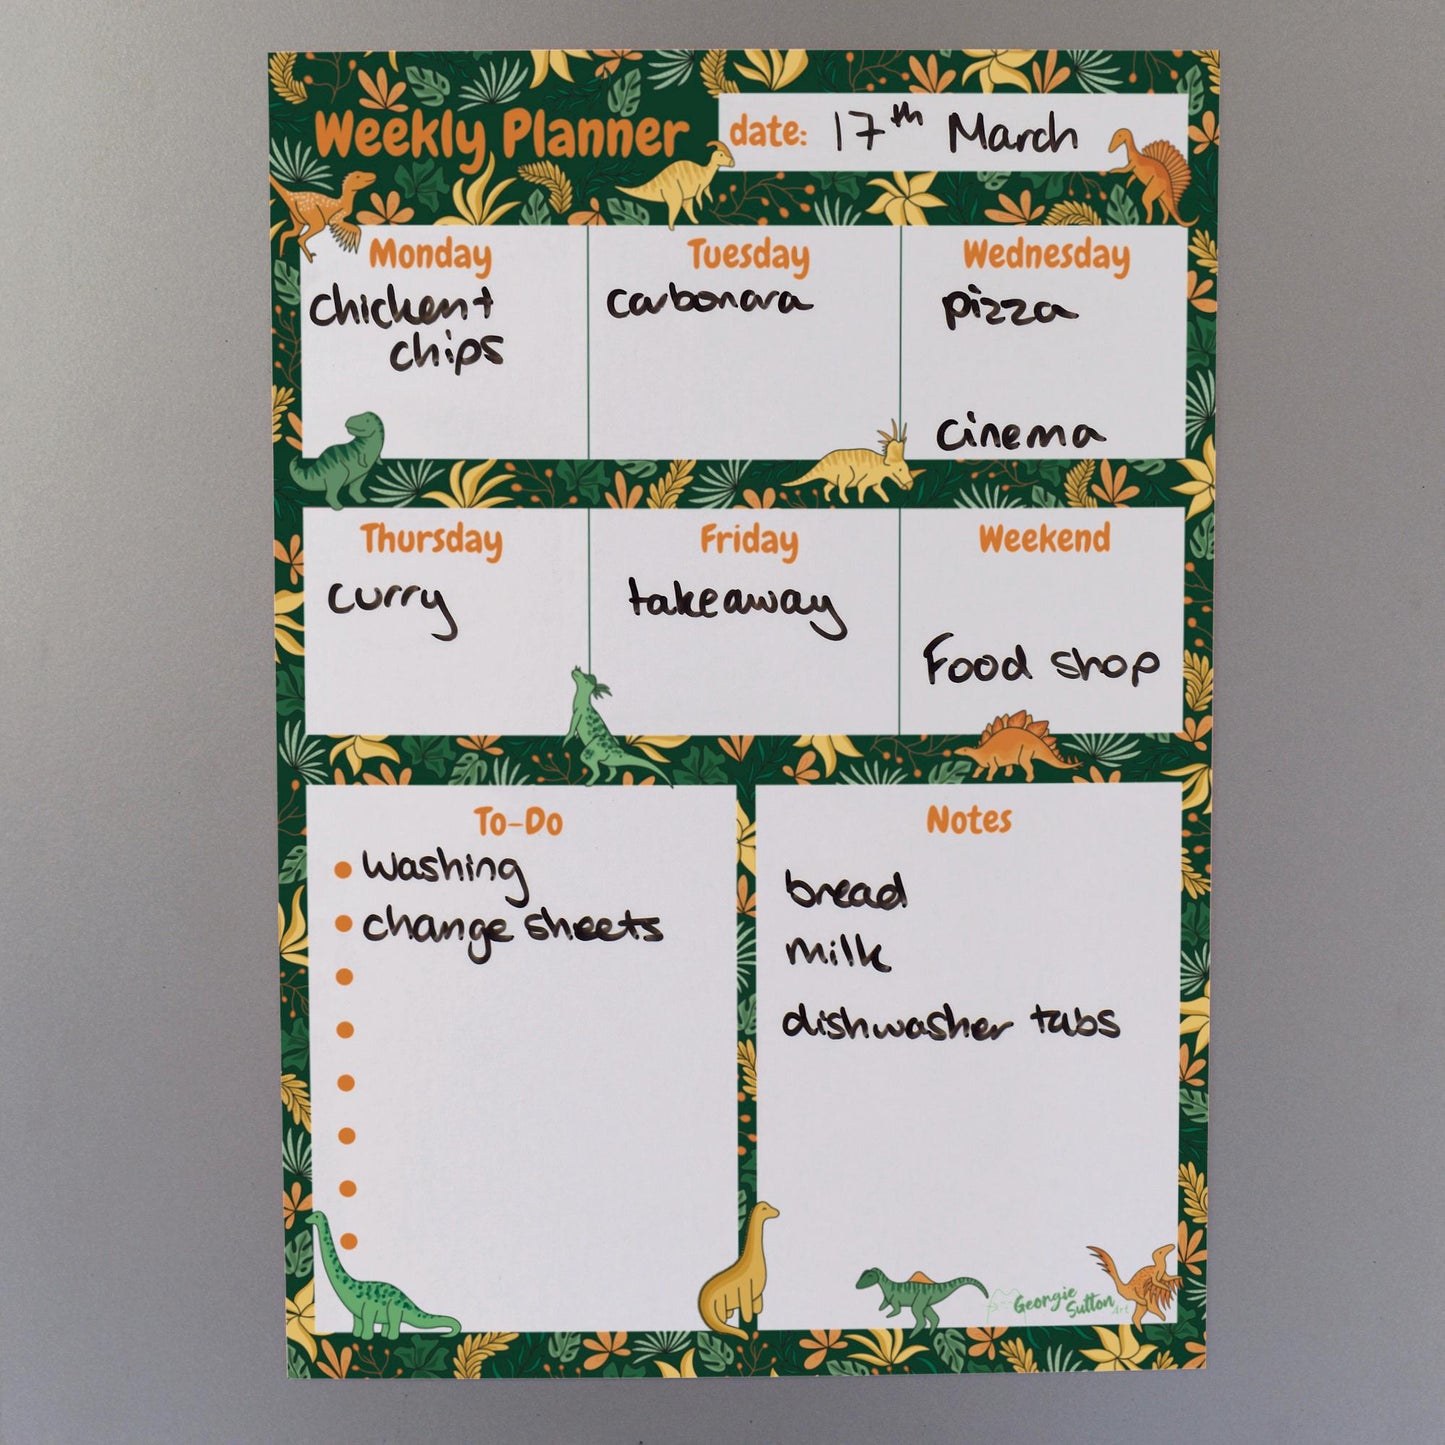 Weekly Planner
date: 17th March
Monday
chicken +
chips
Tuesday
carbonara
Wednesday
pizza
cinema
Thursday
curry
Friday
takeaway
Weekend
Food shop
To-Do
washing
change sheets
Notes
bread
milk
dishwasher tabs
Georgie
Sutton
Art